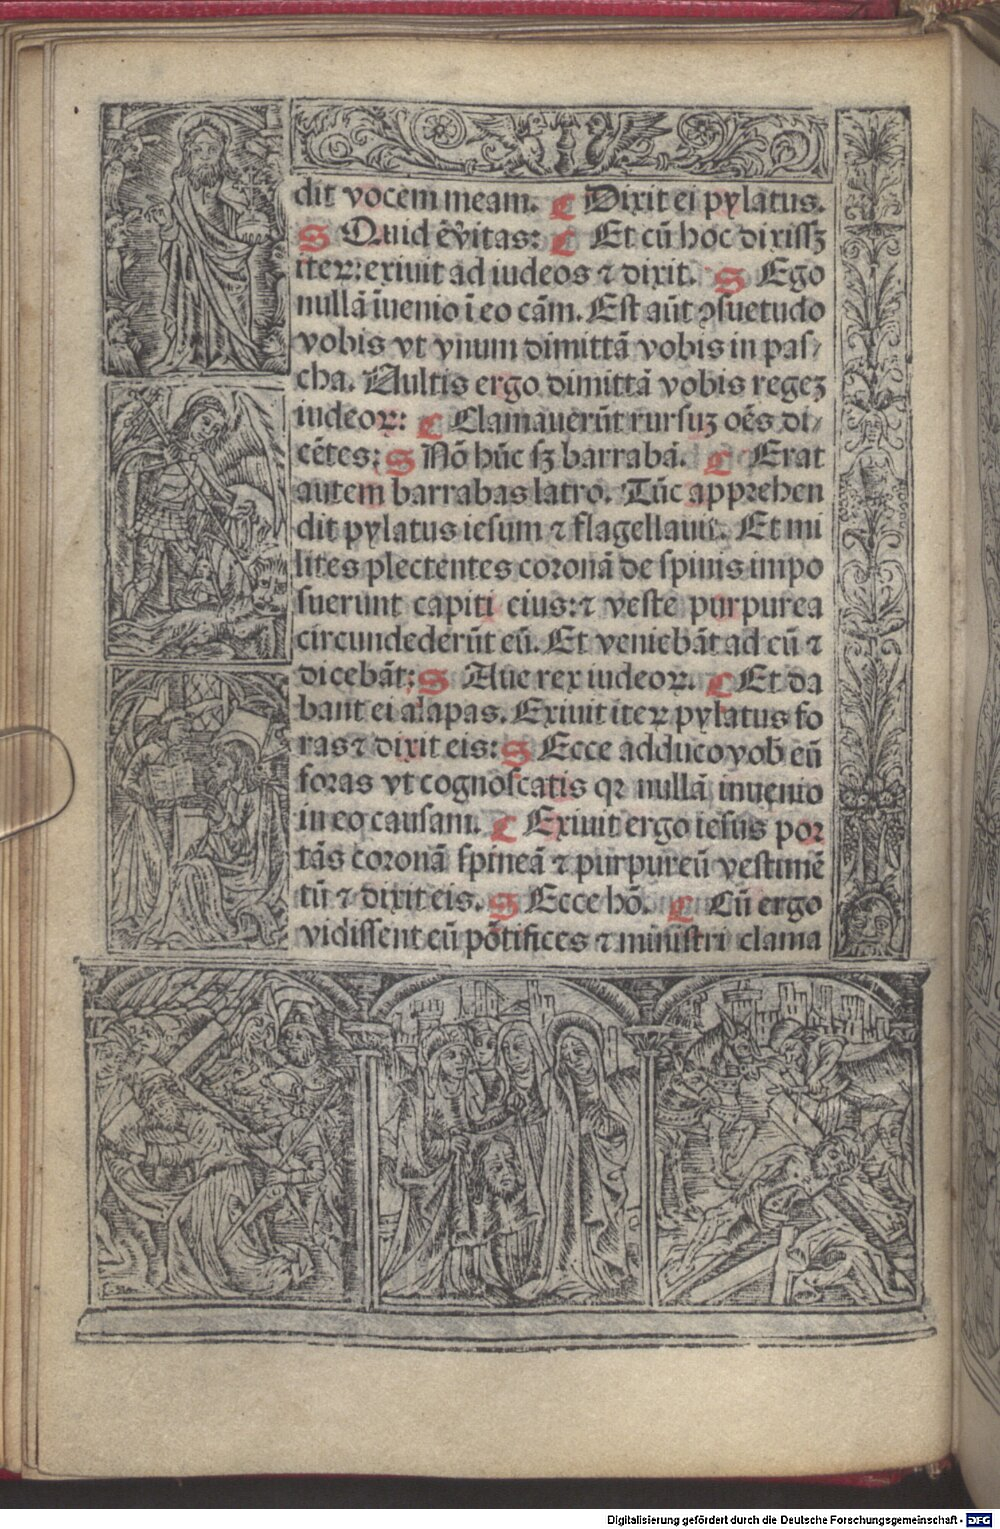 dit vocem meam. C Dixit ei pylatus.
S Quid ē v̄itas: C Et cū hoc dixissꝫ
iteꝝ: exiuit ad iudeos ⁊ dixit. S Ego
nullā īuenio ī eo cām. Est aūt ꝯsuetudo
vobis vt vnum dimittā vobis in pas/
cha. Vultis ergo dimittā vobis regeꝫ
iudeoꝝ: C Clamauerūt rursuꝫ oēs di/
cētes: S Nō hūc sꝫ barrabā. C Erat
autem barrabas latro. Tūc apprehen
dit pylatus iesum ⁊ flagellauit. Et mi
lites plectentes coronā de spinis impo
suerunt capiti eius: ⁊ veste purpurea
circundederūt eū. Et veniebāt ad eū ⁊
dicebāt: S Aue rex iudeoꝝ. C Et da
bant ei alapas. Exiuit iteꝝ pylatus fo
ras ⁊ dixit eis: S Ecce adduco vob̄ eū
foras vt cognoscatis qꝛ nullā inuenio
in eo causam. C Exiuit ergo iesus por
tās coronā spineā ⁊ purpureū vestimē
tū ⁊ dixit eis. S Ecce hō. C Cū ergo
vidissent eū pōtifices ⁊ ministri clama
Digitalisierung gefördert durch die Deutsche Forschungsgemeinschaft - DFG